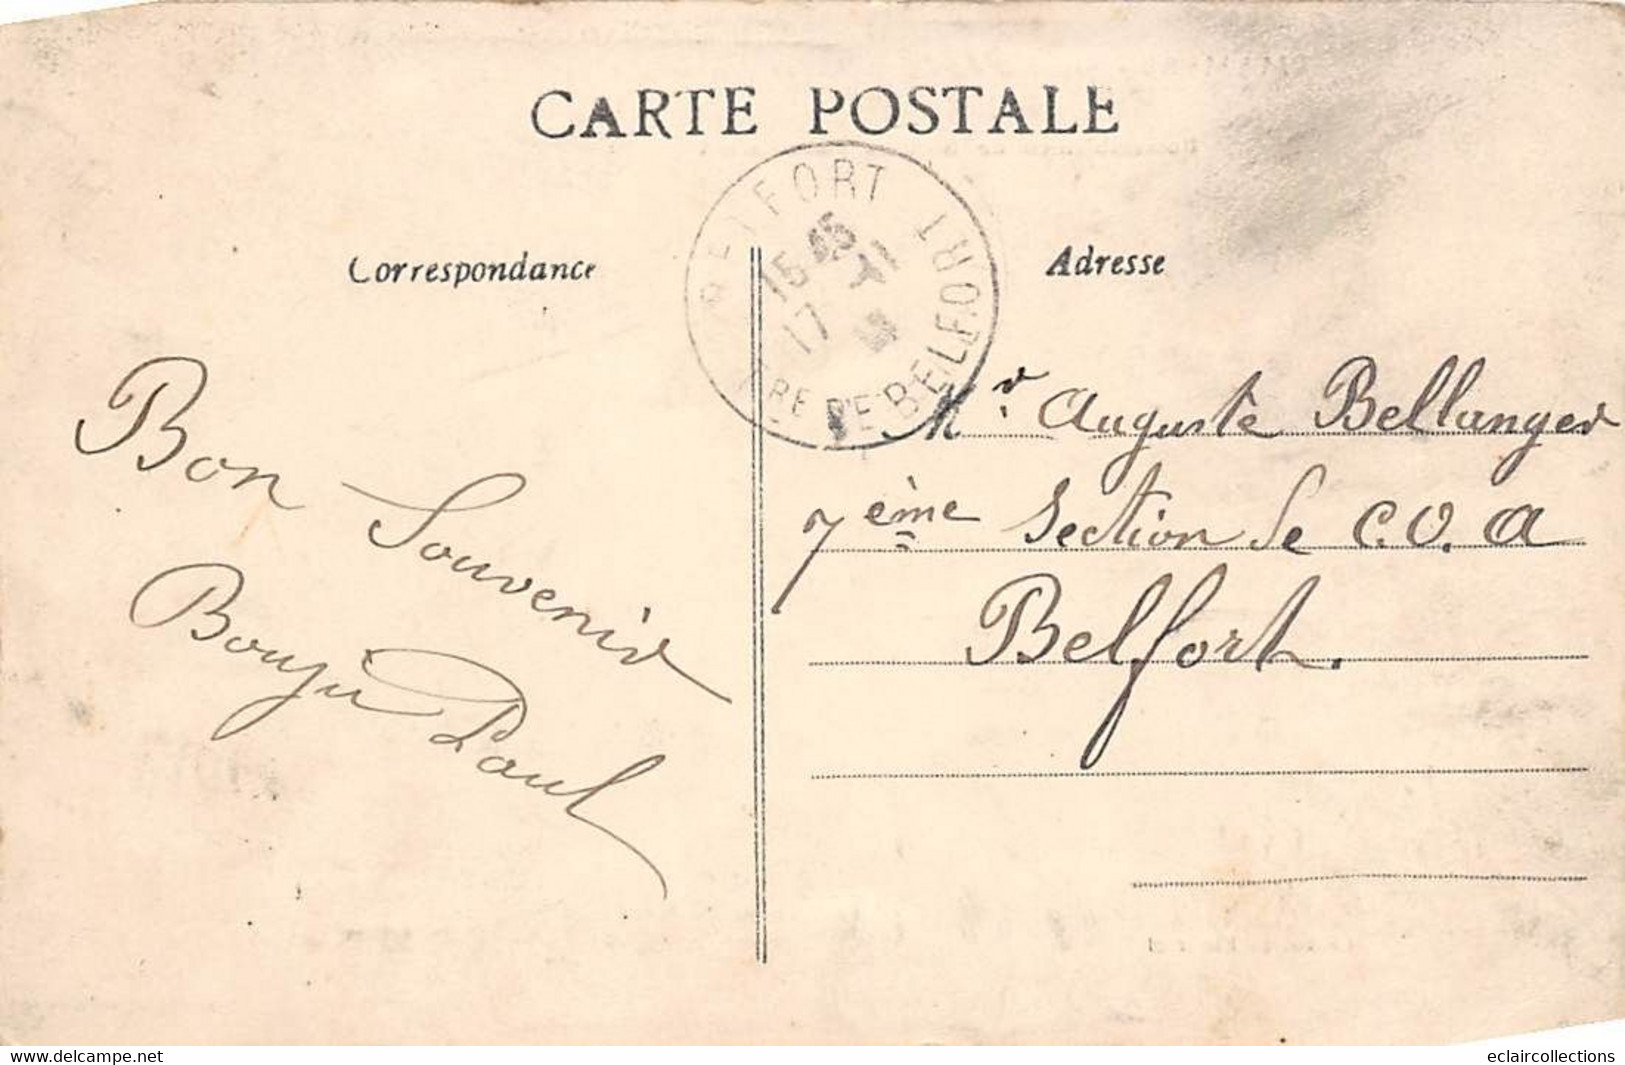 CARTE POSTALE
BELFORT
BELFORT
15 45
17
Correspondance
Adresse
Bon Souvenir
Bouju Paul
Mr. Auguste Bellanger
7ème Section de C.O.A
Belfort.
www.delcampe.net
eclaircollections